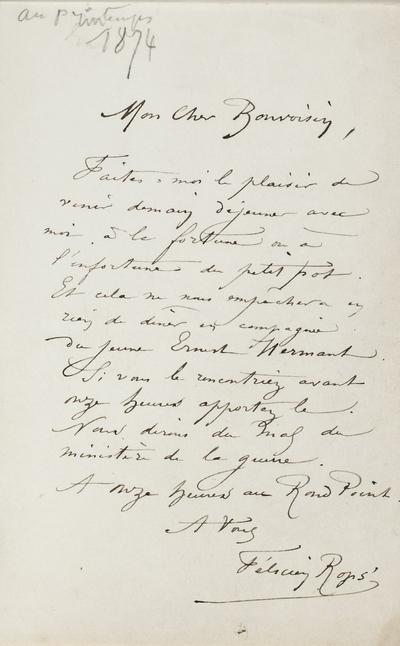 au printemps
1874
Mon Cher Bonvoisin,
Faites-moi le plaisir de
venir demain déjeuner avec
moi, à la fortune ou à
l'infortune du petit pot.
Et cela ne nous empêchera en
rien de dîner en compagnie
du jeune Ernest Hermant.
Si vous le rencontriez avant
onze heures apportez le.
Nous dirons du mal du
ministère de la guerre.
A onze heures au Rond Point.
A Vous
Félicien Rops